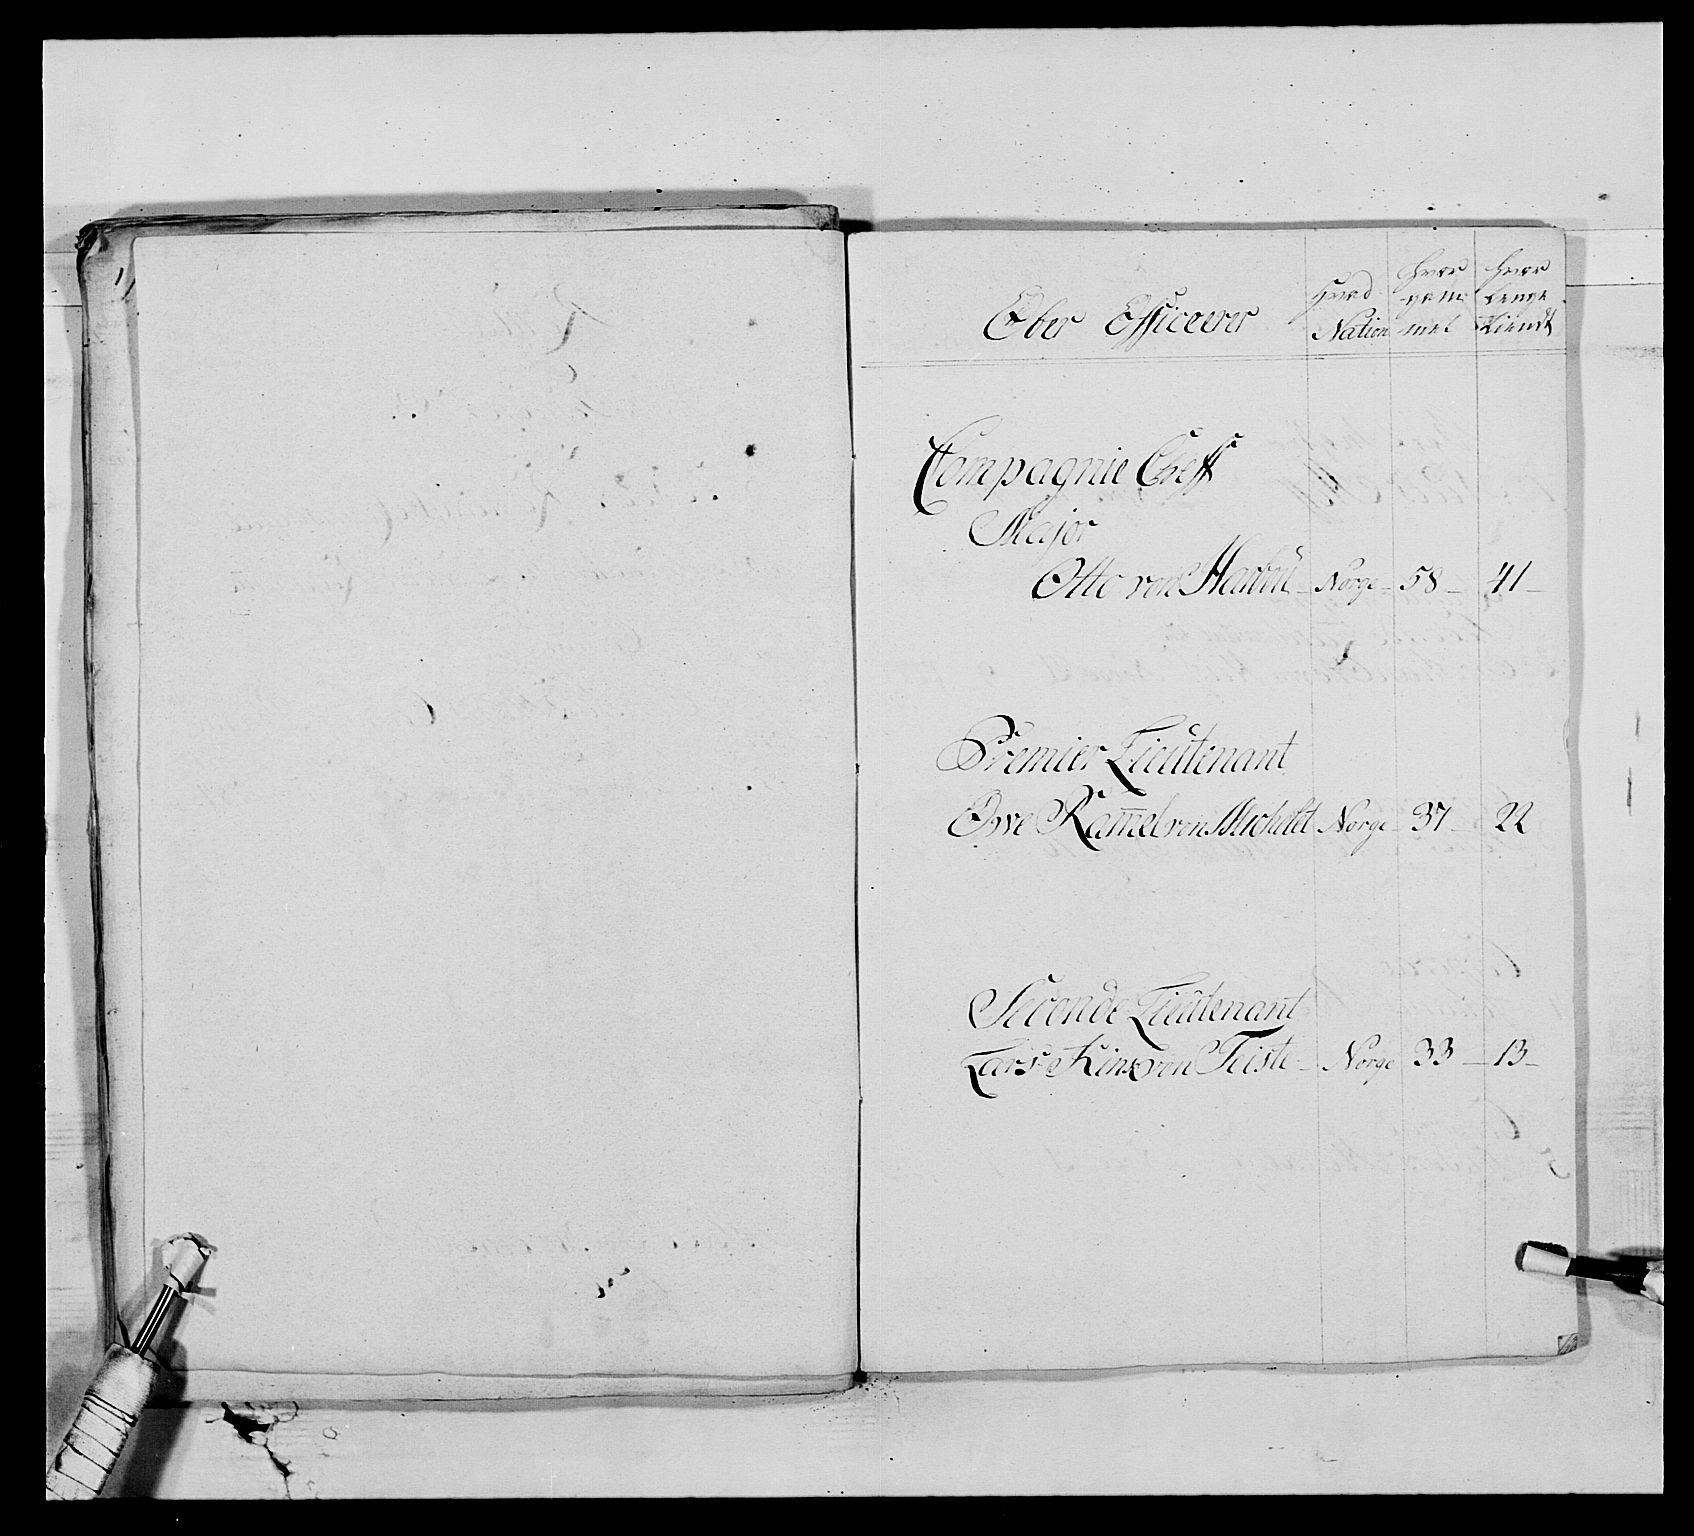 Ober Officerer
Hvad Nation
Hvor gam mel
Hvor lenge tiendt
Compagnie Cheff
Major
Otto von Norge 58 41
Premier Lieutenant
Owe Ram̅el von Michelet Norge 37 22
Seconde Lieutenant
Lars von Teiste Norge 33 13